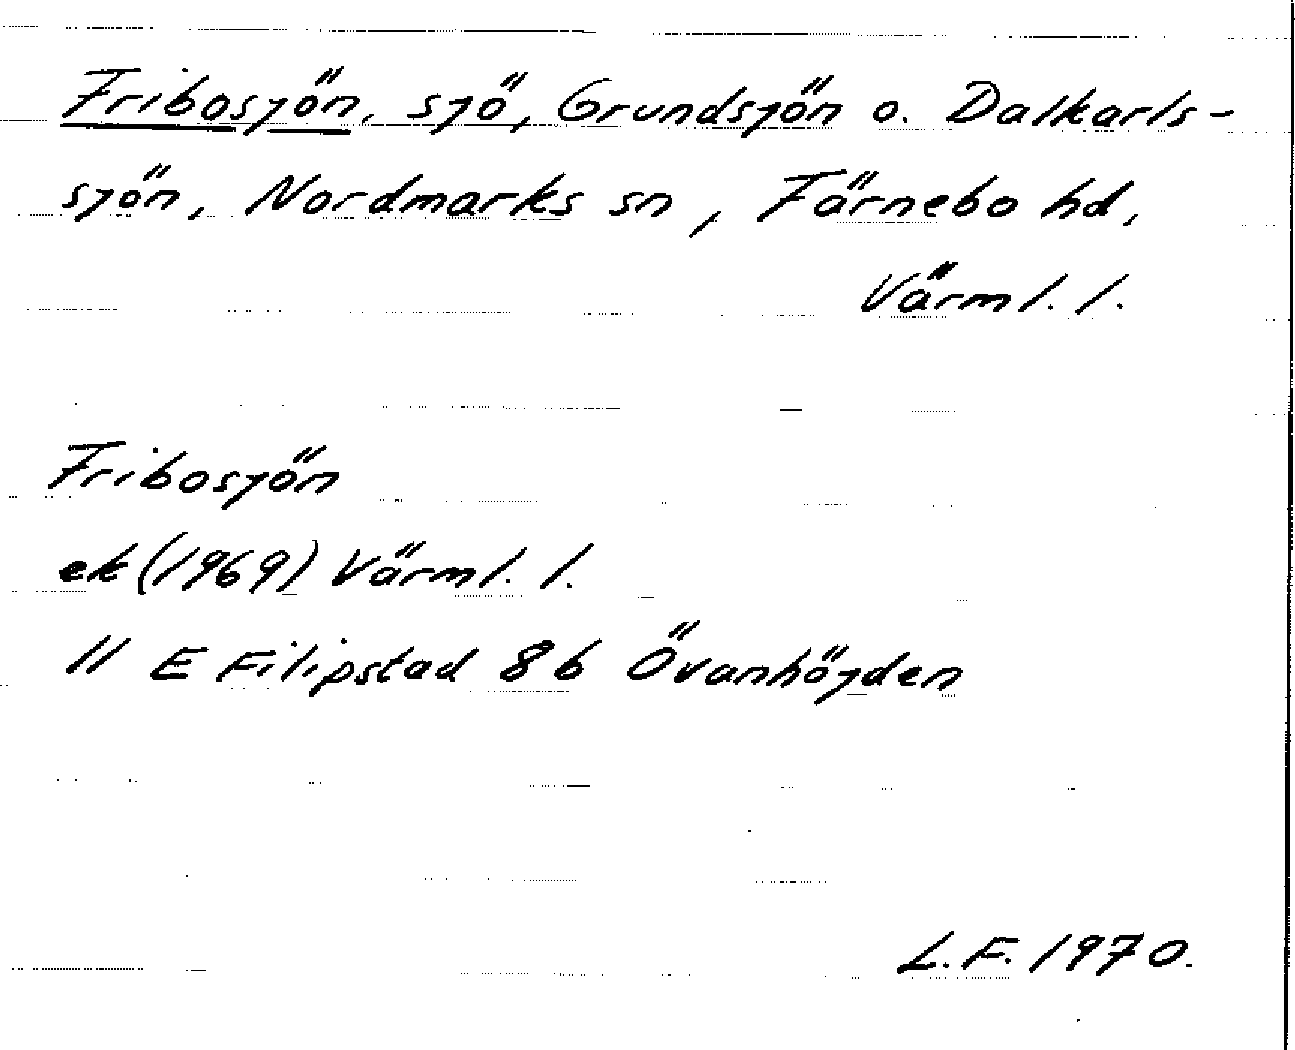 Fribosjön, sjö, Grundsjön o. Dalkarls-
sjön, Nordmarks sn, Färnebo hd,
Värml. l.
Fribosjön
ek (1969) Värml. l.
11 E Filipstad 8b Övanhöjden
L.F. 1970.